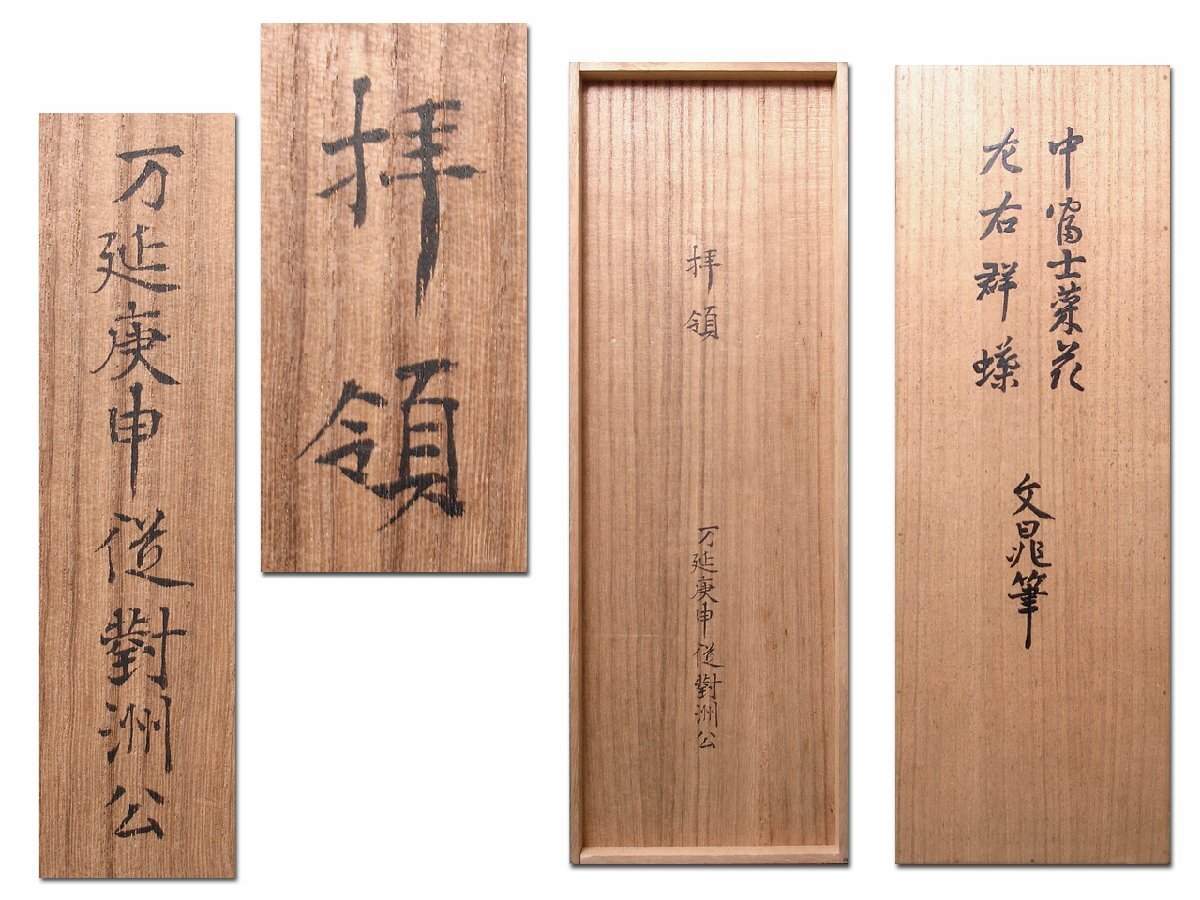 中富士菜花
左右群蝶
文晁筆
拝領
万延庚申従對洲公
拝領
万延庚申従對洲公